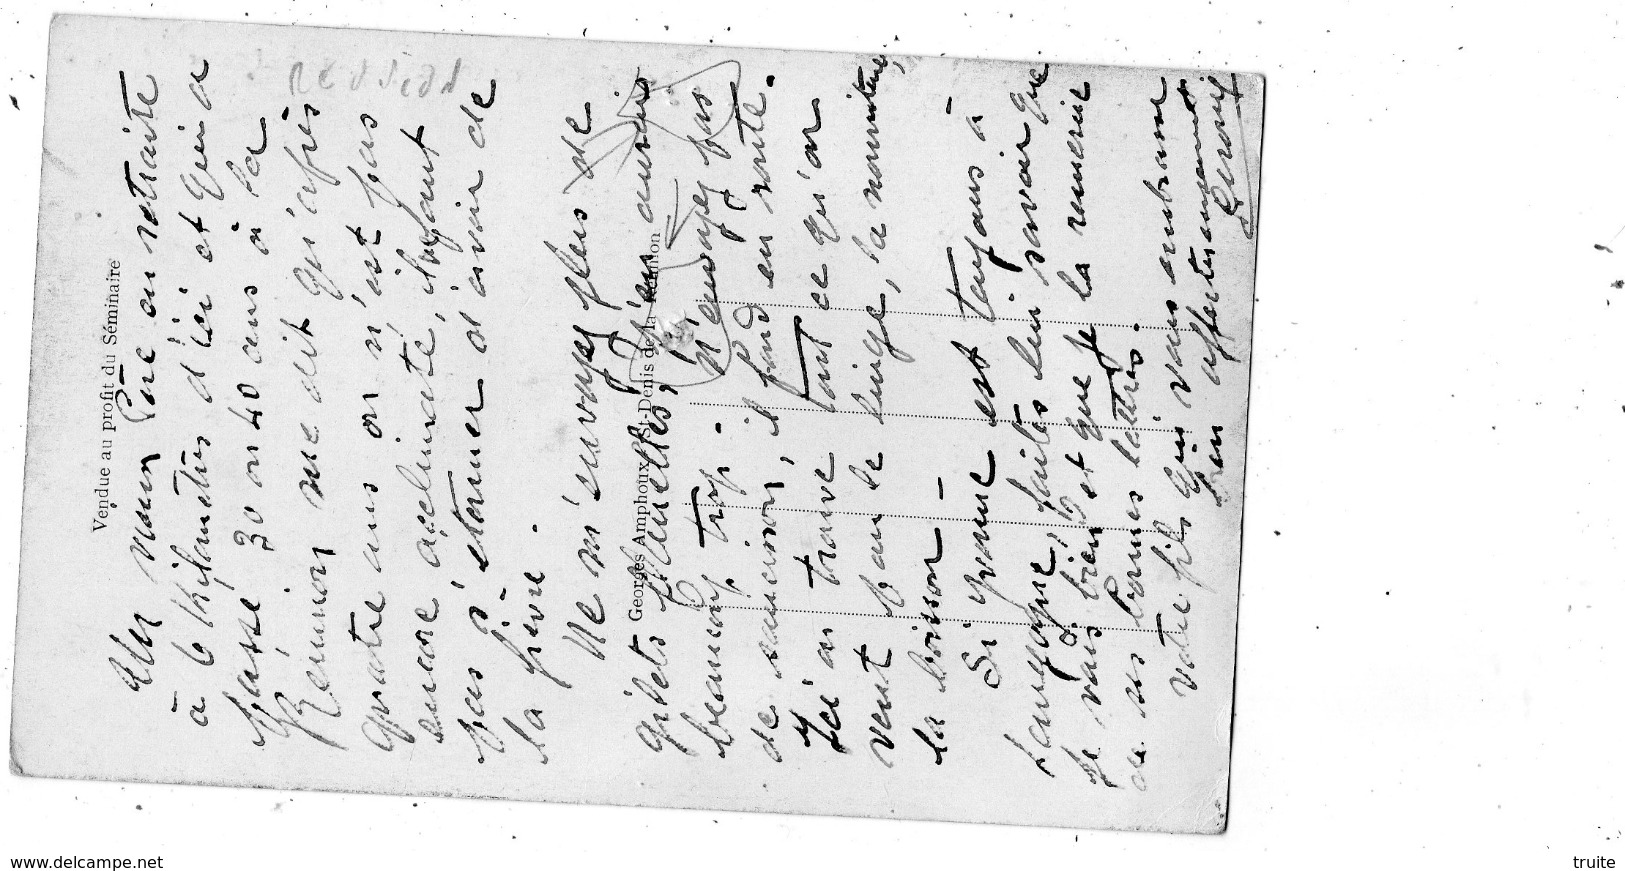 Vendue au profit du Séminaire
Mon Père en retraite
à 6 Kilomètres d'ici et qui a
passé 30 ou 40 ans à la
Réunion me dit qu'après
quatre ans on n'est pas
encore acclimaté, il ne faut
pas s'étonner d'avoir de
la fièvre.
Ne m'envoyez plus de
gilets flanelles, j'en aurais
beaucoup trop. N'envoyez pas
de saucisson, il fond en route.
Ici on trouve tout ce qu'on
veut dans le linge, la nourriture,
la boisson –
Si Yvonne est toujours à
faites lui savoir que
je vais bien et que je la remercie
de ses bonnes lettres.
Votre fils qui vous embrasse
bien affectueusement
Georges Amphoux, St-Denis de la Réunion
www.delcampe.net
truite